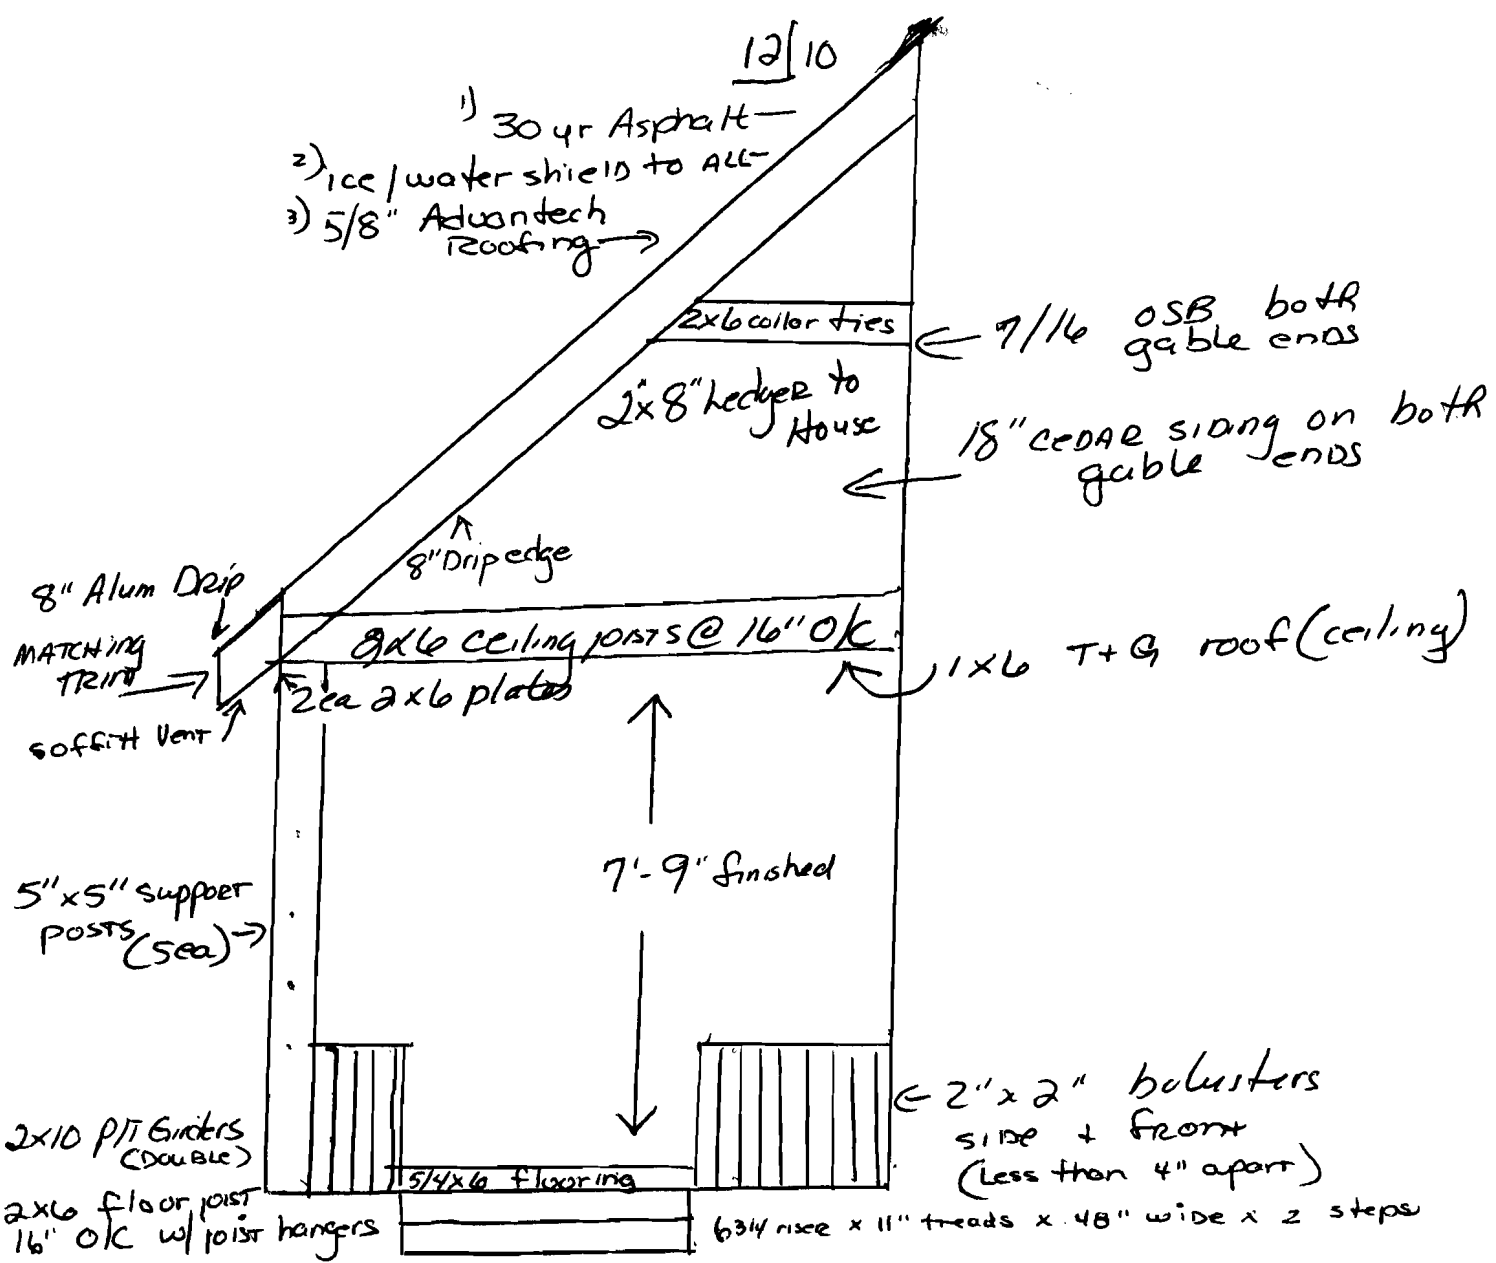 12/10
1) 30 yr Asphalt
2) ice/water shield to ALL
3) 5/8" Advantech
Roofing
2x6 collar ties
7/16 OSB both
gable ends
2"x8" Ledger to
House
18" CEDAR SIDING on both
gable ends
8" Drip edge
8" Alum Drip
MATCHING
TRIM
soffitt Vent
2x6 ceiling joists @ 16" O/C
2ea 2x6 plates
1x6 T+G roof (ceiling)
7'-9" finished
5"x5" support
posts
(5ea)
2"x2" balusters
side + front
(Less than 4" apart)
2x10 P/T Girders
(DOUBLE)
5/4x6 flooring
2x6 floor joist
16" O/C w/ joist hangers
6 3/4 riser x 11" treads x 48" wide x 2 steps